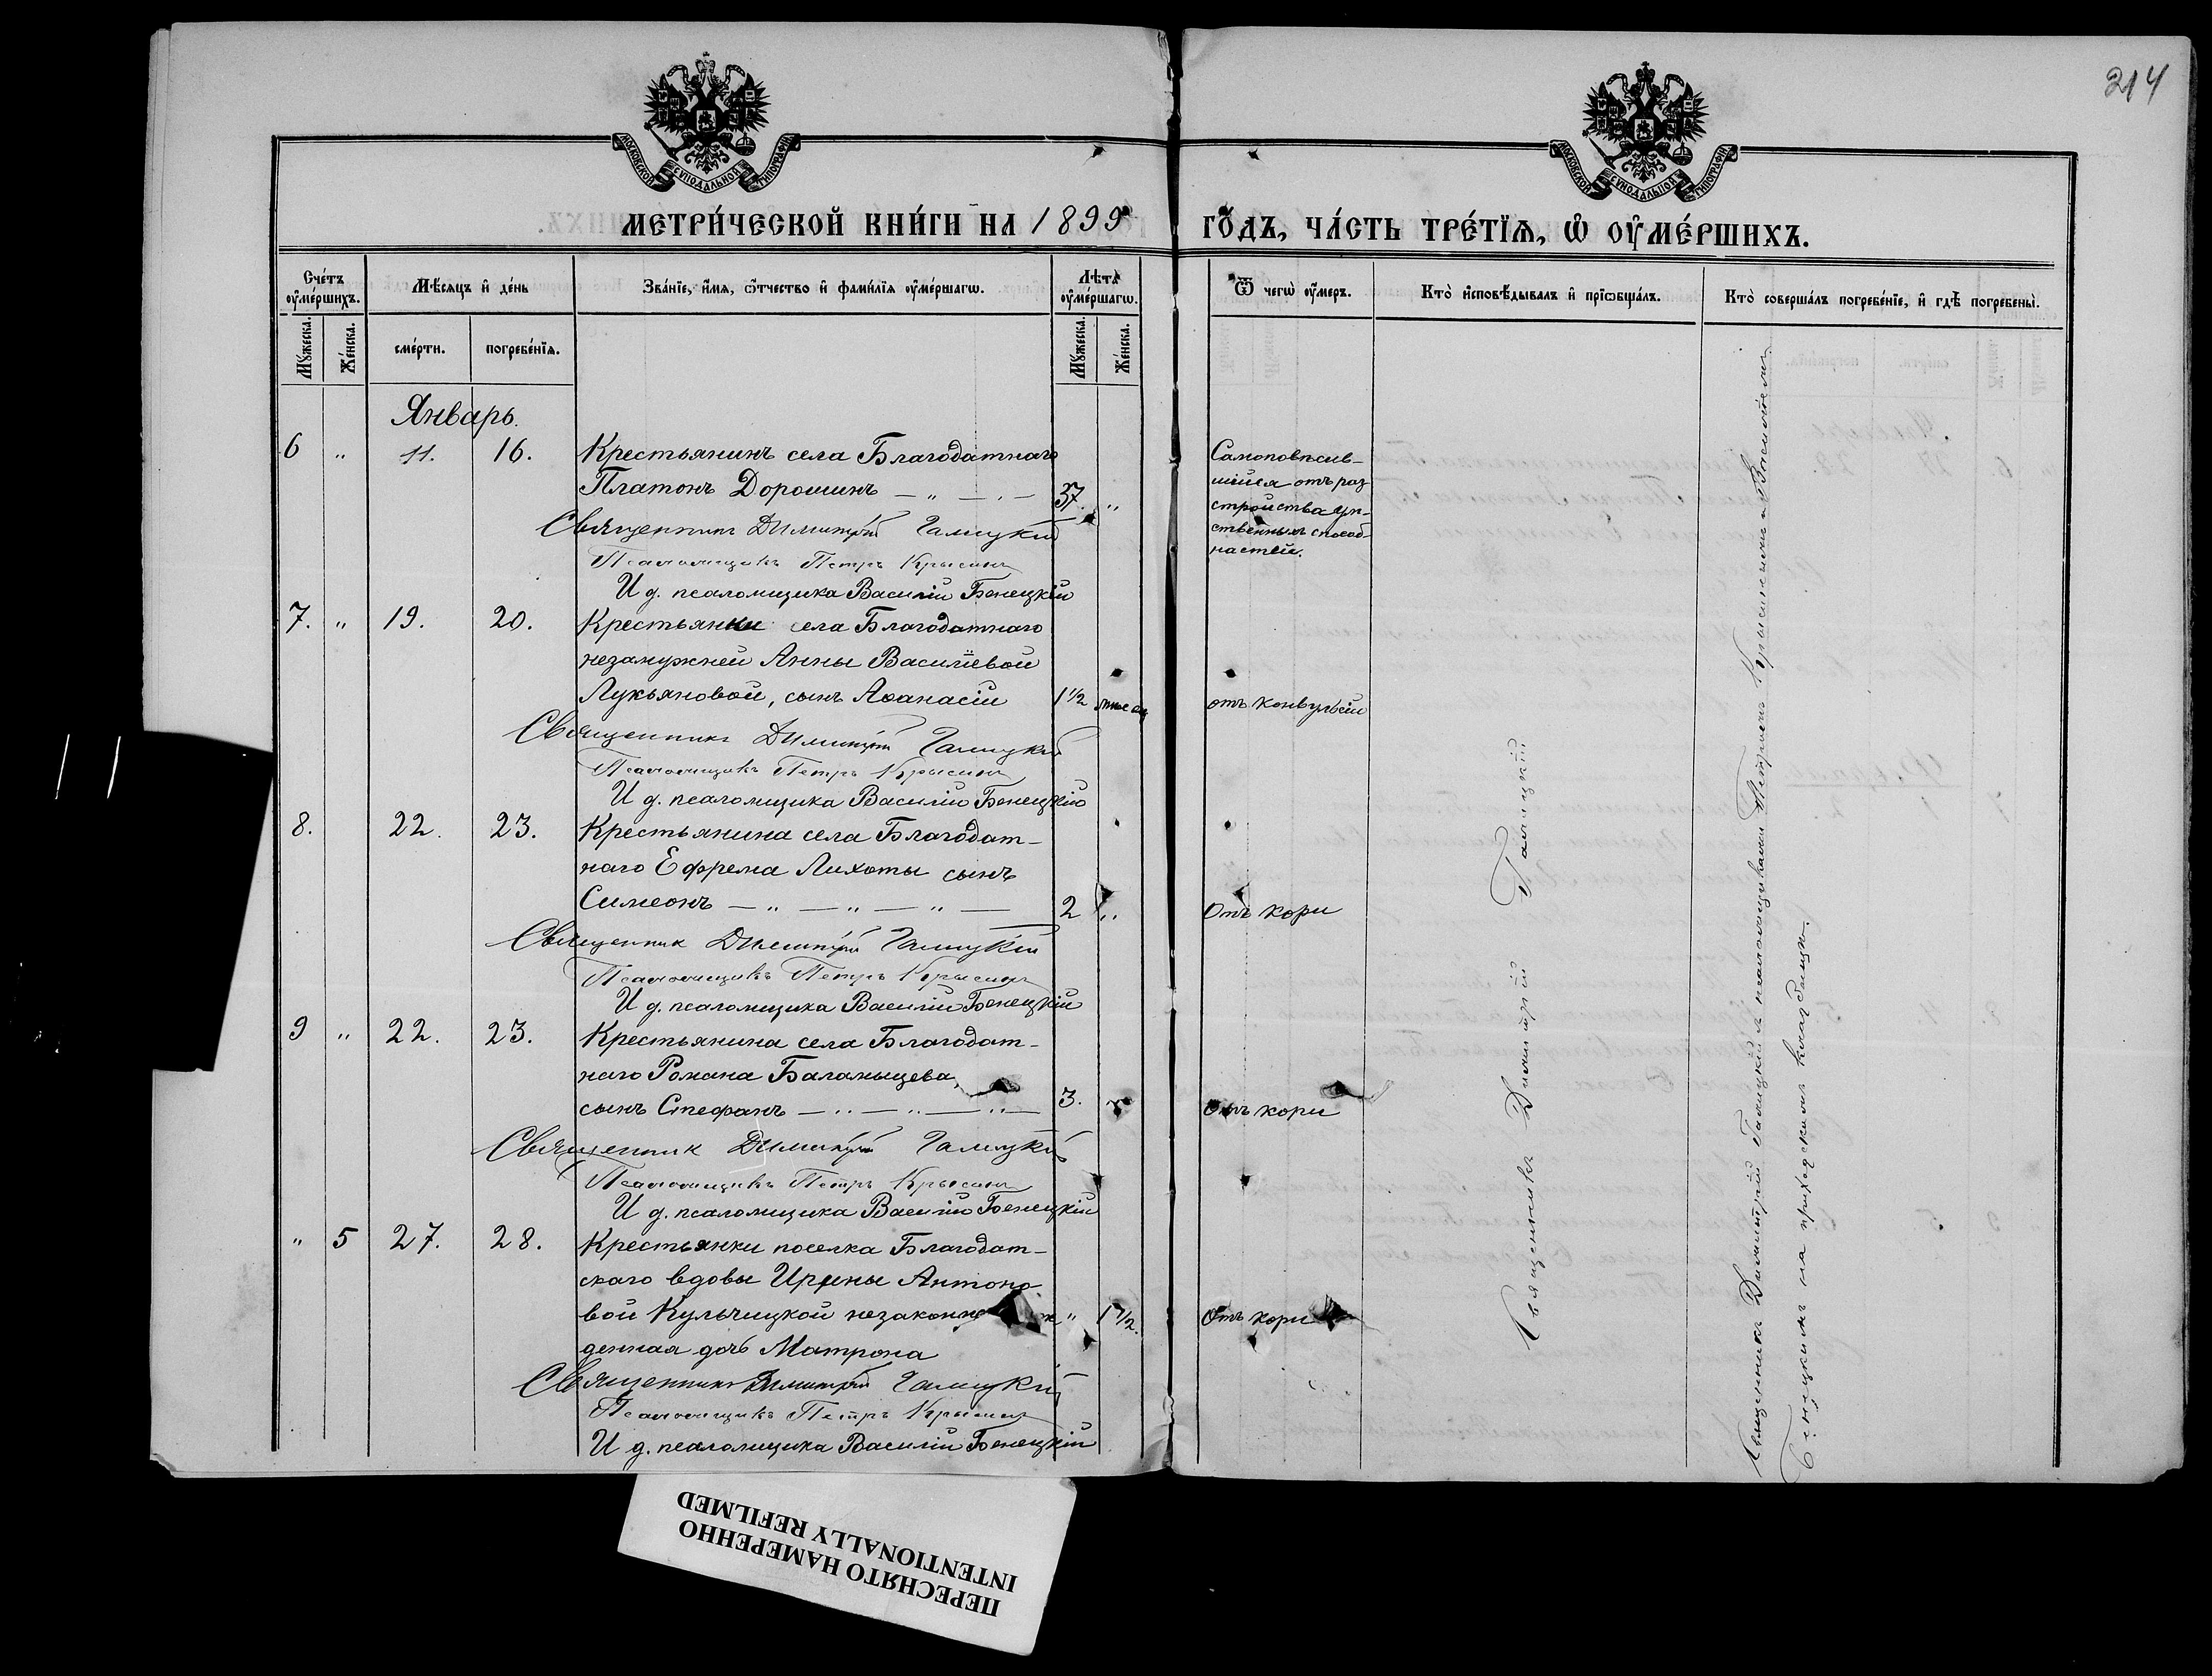 214
МОСКОВСКОЙ СУНОДАЛЬНОЙ ТИПОГРАФІИ
МОСКОВСКОЙ СУНОДАЛЬНОЙ ТИПОГРАФІИ
МЕТРИ́ЧЕСКОЙ КНИ́ГИ НА 1899
ГО́ДЪ, ЧА́СТЬ ТРЕ́ТЇѦ, Ѡ ОУ҆МЕ́РШИХЪ.
Сче́тъ оу҆ме́ршихъ.
Мѣ́сяцъ и҆ де́нь
Зва́нїе, и҆́мѧ, ѻ҆́тчество и҆ фами́лїѧ оу҆ме́ршагѡ.
Лѣ́та оу҆ме́ршагѡ.
Ѿ чегѡ̀ оу҆́меръ.
Кто̀ и҆сповѣ́дывалъ и҆ прїѡбща́лъ.
Кто̀ соверша́лъ погребе́нїе, и҆ гдѣ̀ погребены̀.
Мꙋ́жеска.
Же́нска.
сме́рти.
погребе́нїѧ.
Мꙋ́жеска.
Же́нска.
Январь.
6 " 11. 16. Крестьянинъ села Благодатнаго
Платонъ Дорошинъ — " — . — 37. "
Самоповѣсив-
шійся отъ раз
стройства ум-
ственныхъ способ-
ностей.
Священникъ Димитрій Галицкій
Псаломщикъ Петръ Крысинъ
И д. псаломщика Василій Бенецкій
7. " 19. 20. Крестьянки села Благодатнаго
незамужней Анны Василіевой
Лукьяновой, сынъ Аѳанасій 1 1/2 мѣсяц отъ конвульсій
Священникъ Димитрій Галицкій
Псаломщикъ Петръ Крысинъ
И д. псаломщика Василій Бенецкій
8. 22. 23. Крестьянина села Благодат-
наго Ефрема Лихоты сынъ
Симеонъ — " — " — " — 2 " Отъ кори
Священник Димитрій Галицкій
Псаломщикъ Петръ Крысинъ
И д. псаломщика Василій Бенецкій
9 " 22. 23. Крестьянина села Благодат-
наго Романа Баламыцева,
сынъ Стефанъ — " — " — " — 3. " Отъ кори
Священник Димитрій Галицкій
Псаломщикъ Петръ Крысинъ
И д. псаломщика Василій Бенецкій
" 5 27. 28. Крестьянки поселка Благодат-
скаго вдовы Ирины Антоно
вой Кульчицкой незаконно
денная дочь Матрона " 1 1/2. Отъ кори
Священникъ Димитрій Галицкій
Псаломщикъ Петръ Крысинъ
И д. псаломщика Василій Бенецкій
Священникъ Димитрій Галицкій
Священникъ Димитрій Галицкій съ псаломщиками Петромъ Крысинымъ и Василіемъ
Бенецкимъ на приходскомъ кладбищѣ.
ПЕРЕСНЯТО НАМЕРЕННО
INTENTIONALLY REFILMED